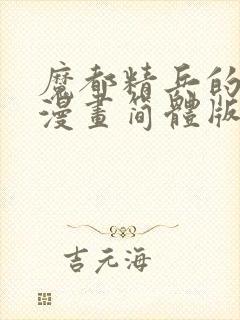 魔都精兵的
漫畫簡體版
吉元海